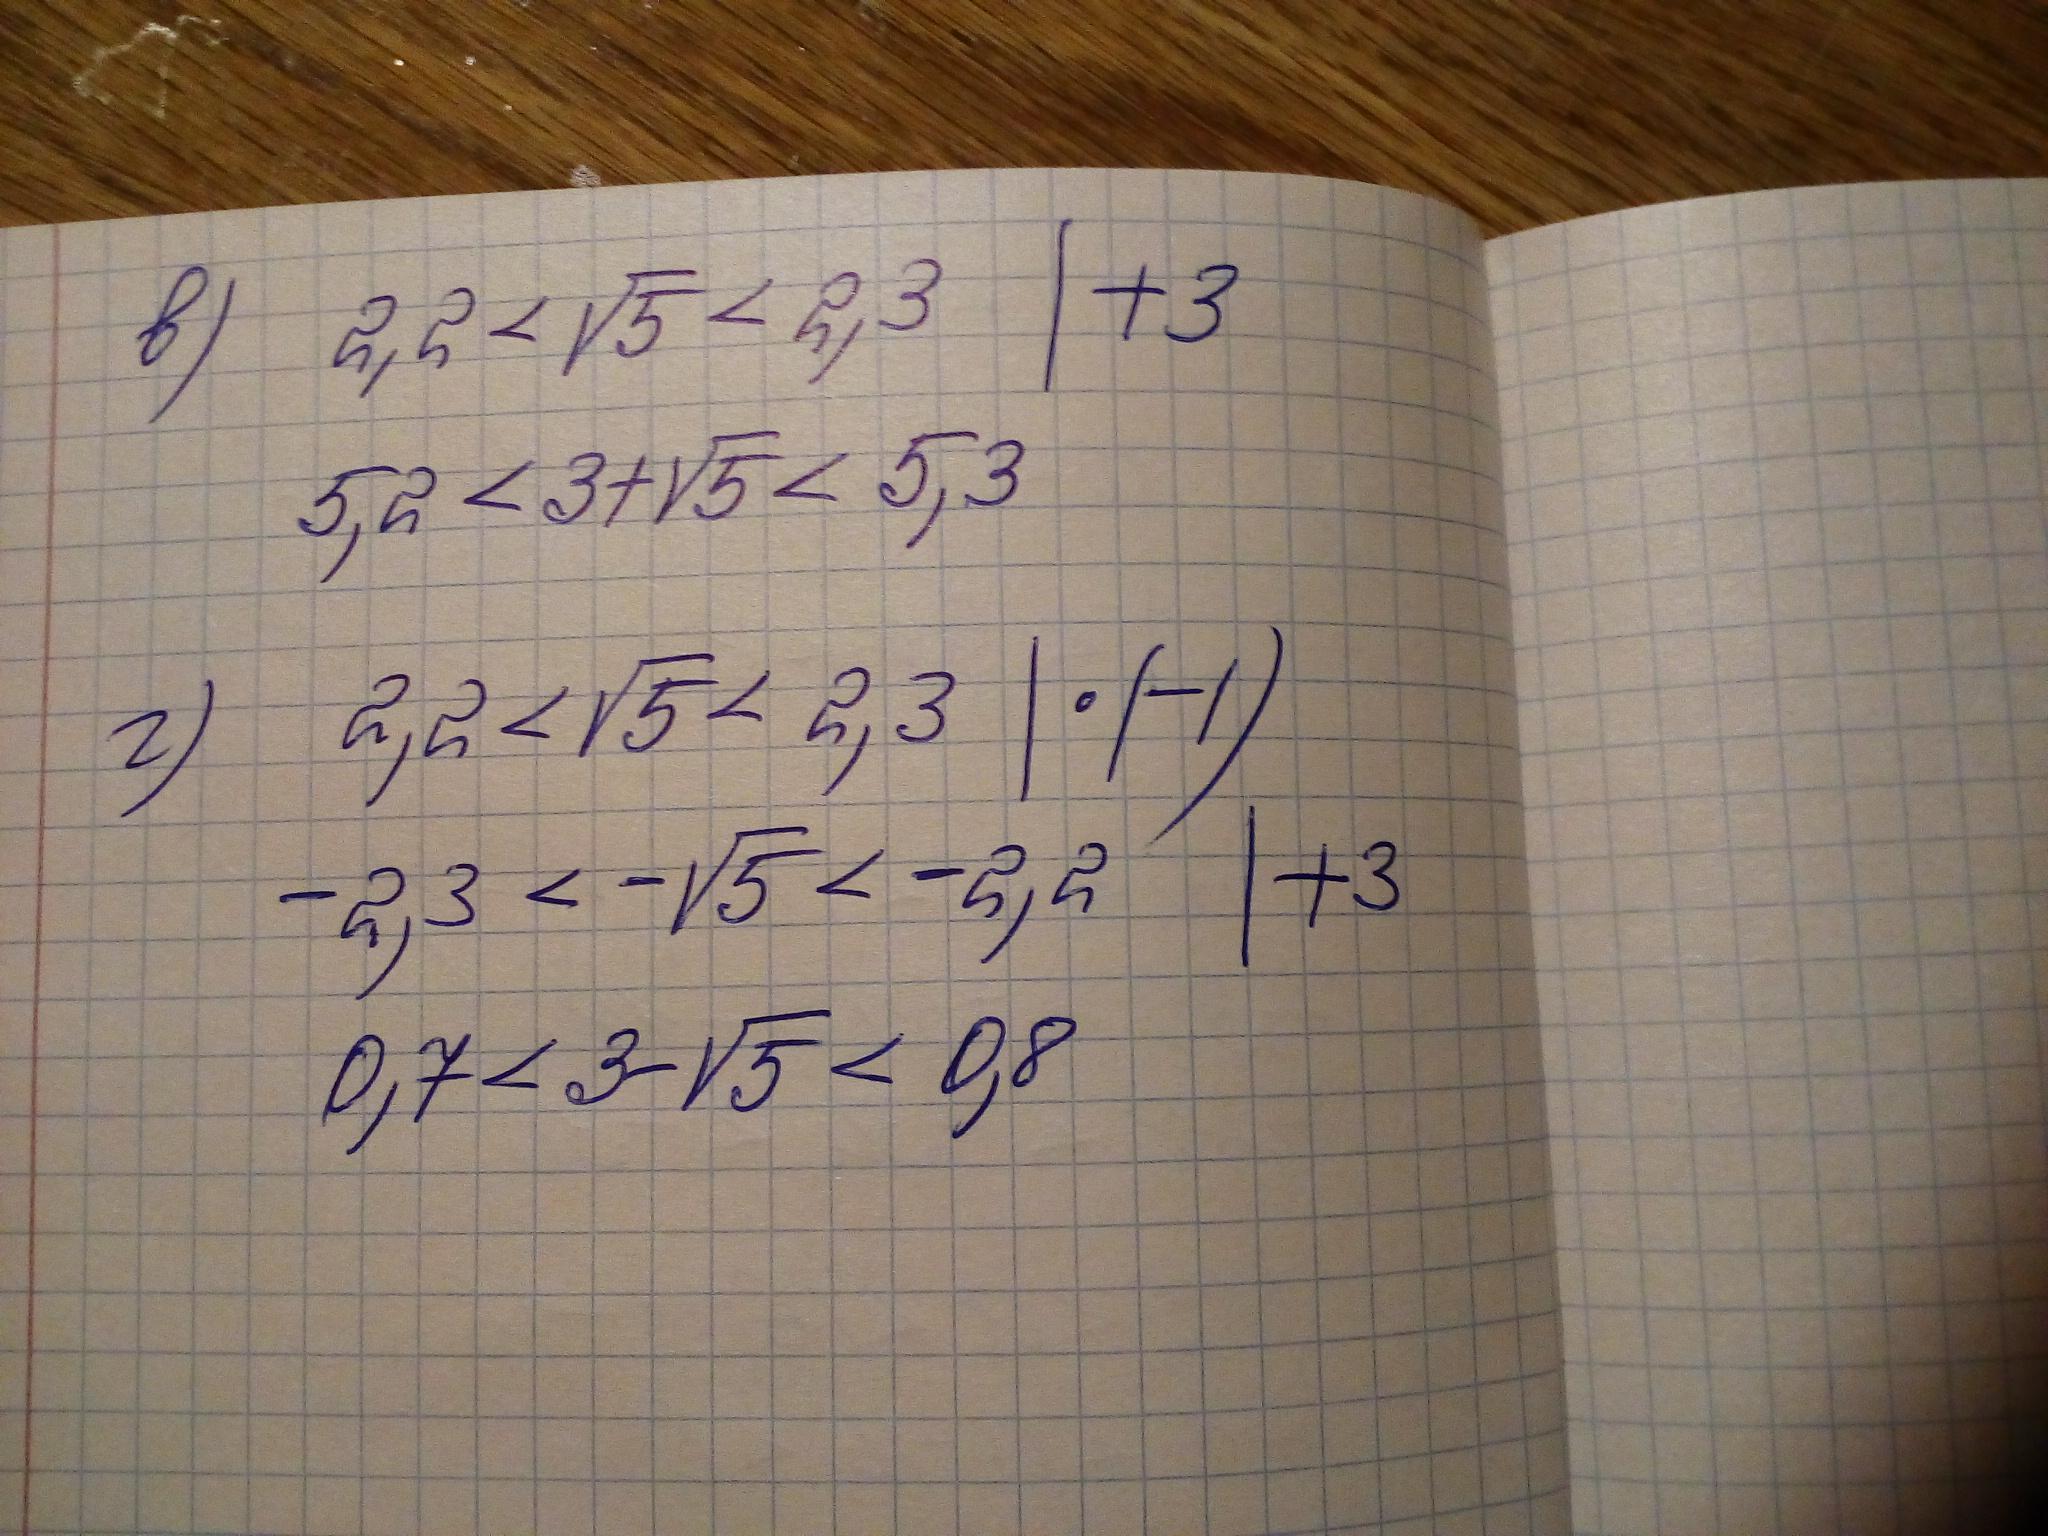 в) 2,2 < √5 < 2,3 | +3
5,2 < 3+√5 < 5,3
г) 2,2 < √5 < 2,3 | · (-1)
-2,3 < -√5 < -2,2 | +3
0,7 < 3-√5 < 0,8